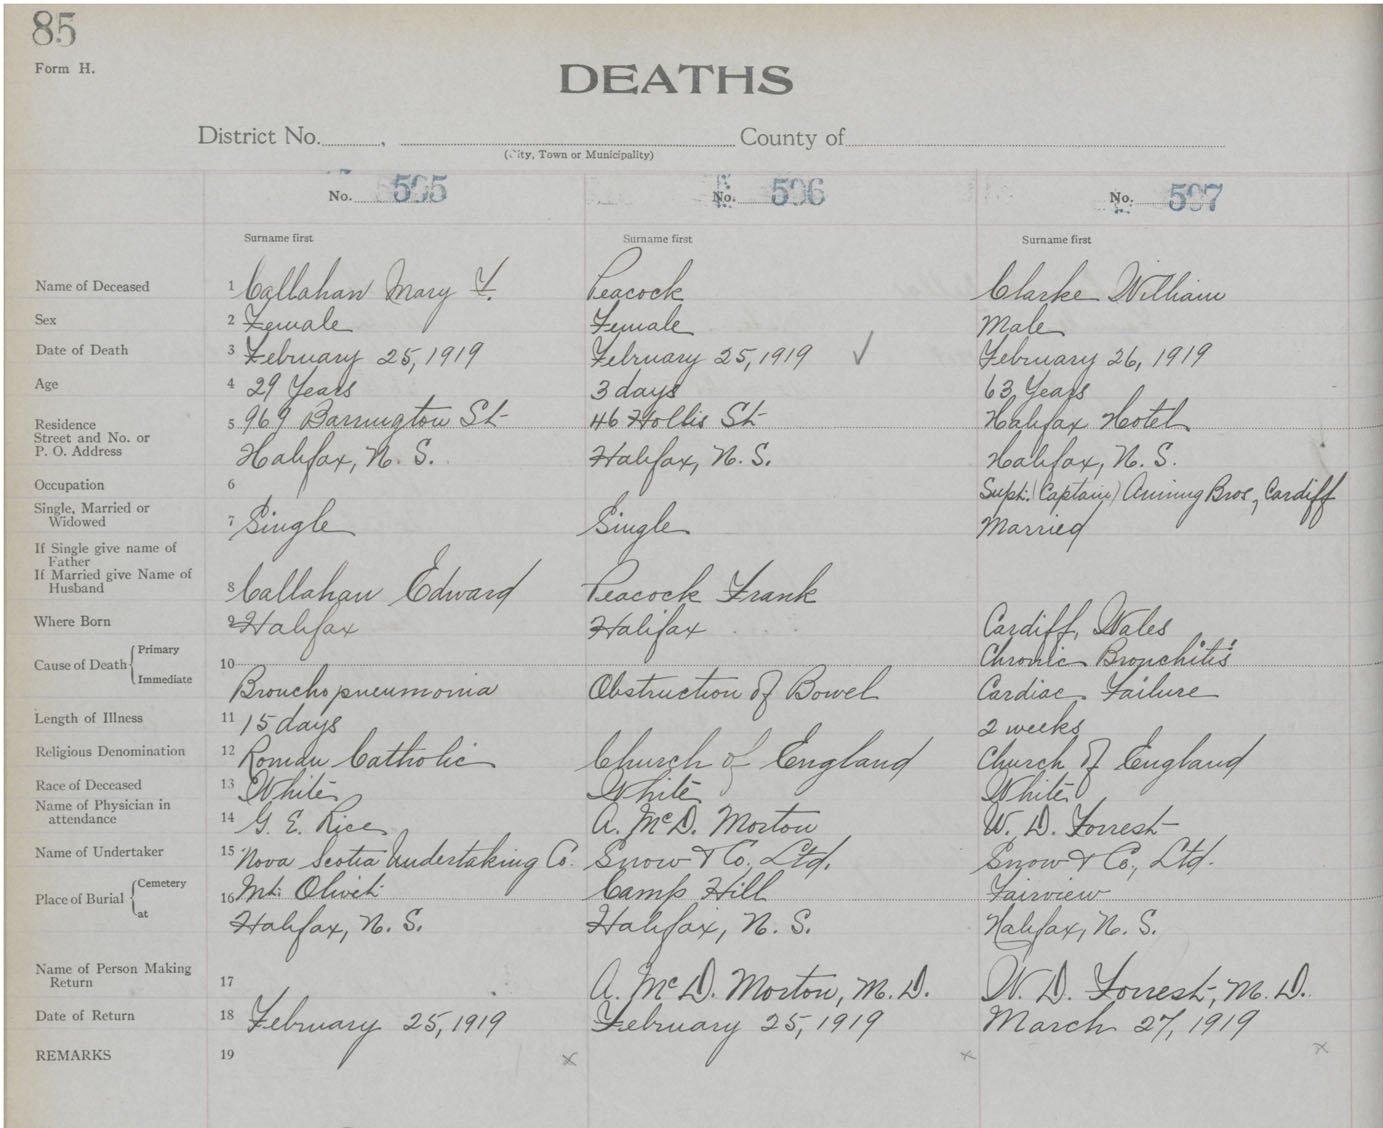 85
Form H.
DEATHS
District No. , County of
(City, Town or Municipality)
No. 595 No. 596 No. 597
Surname first Surname first Surname first
Name of Deceased 1 Callahan Mary F. Peacock Clarke William
Sex 2 Female Female Male
Date of Death 3 February 25, 1919 February 25, 1919 ✓ February 26, 1919
Age 4 29 Years 3 days 63 Years
Residence 5 969 Barrington St 46 Hollis St Halifax Hotel
Street and No. or
P. O. Address Halifax, N. S. Halifax, N. S. Halifax, N. S.
Occupation 6 Supt. (Captain) Bros, Cardiff
Single, Married or
Widowed 7 Single Single Married
If Single give name of
Father
If Married give Name of
Husband 8 Callahan Edward Peacock Frank
Where Born 9 Halifax Halifax Cardiff, Wales
Cause of Death Primary 10 Chronic Bronchitis
Immediate Bronchopneumonia Obstruction of Bowel Cardiac Failure
Length of Illness 11 15 days 2 weeks
Religious Denomination 12 Roman Catholic Church of England Church of England
Race of Deceased 13 White White White
Name of Physician in
attendance 14 G. E. Rice A. McD. Morton W. D. Forrest
Name of Undertaker 15 Nova Scotia Undertaking Co. Snow & Co, Ltd. Snow & Co., Ltd.
Place of Burial Cemetery 16 Mt. Olivet Camp Hill Fairview
at Halifax, N. S. Halifax, N. S. Halifax, N. S.
Name of Person Making
Return 17 A. McD. Morton, M. D. W. D. Forrest, M. D.
Date of Return 18 February 25, 1919 February 25, 1919 March 27, 1919
REMARKS 19 x x x